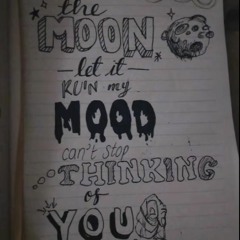 the
MOON
— let it —
RUIN my
MOOD
can't stop
THINKING
of
YOU